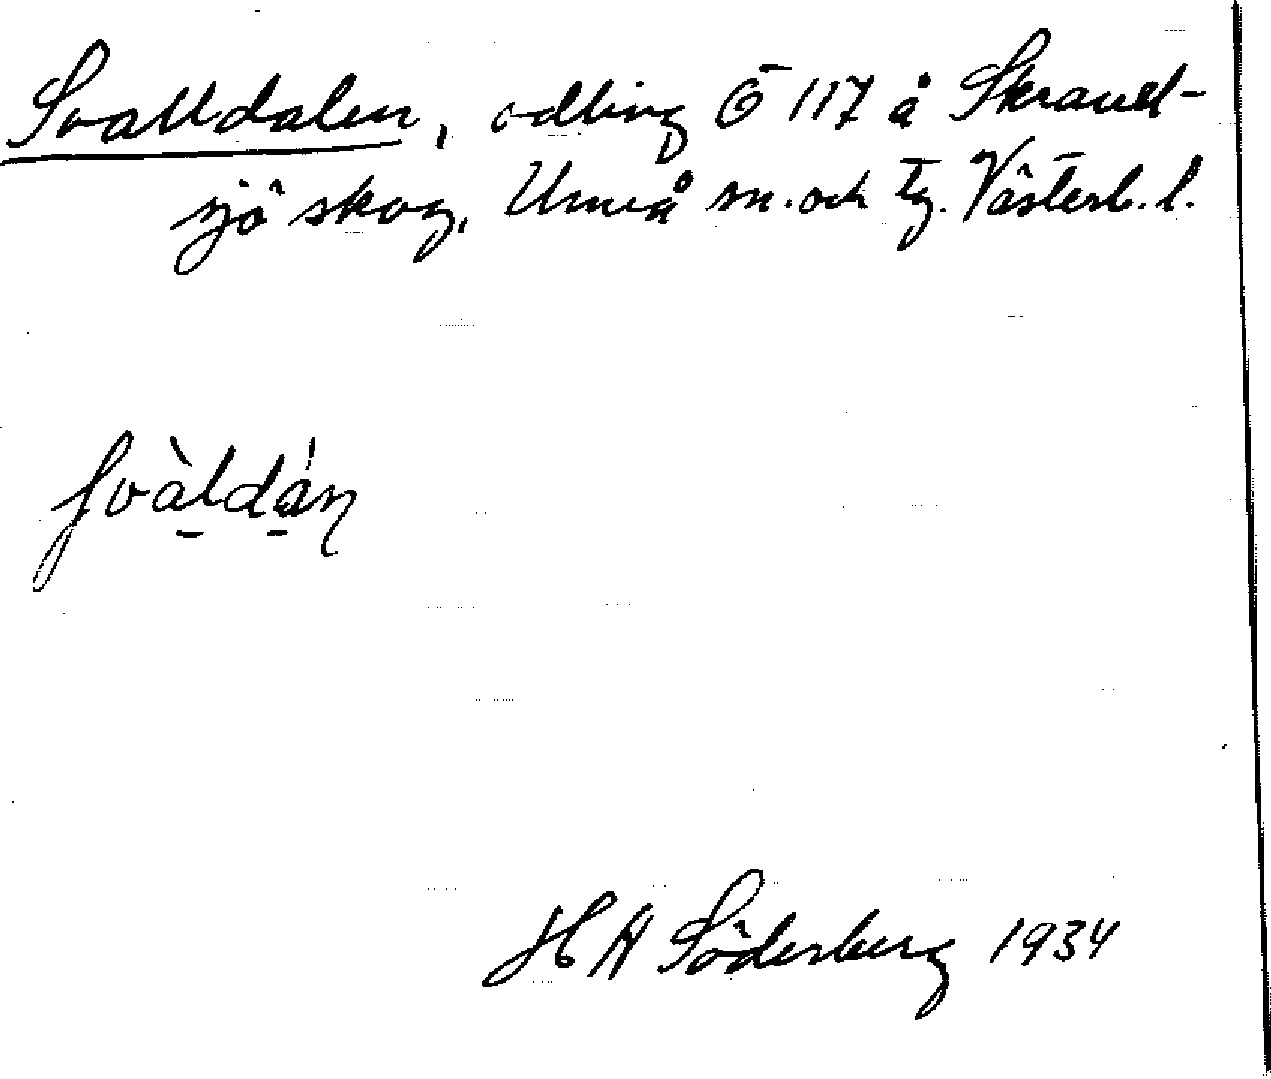 Svalldalen, odling Ö 117 å Skravel-
sjö skog, Umeå sn. och tg. Västerb. l.
svàldán
H A Söderberg 1934